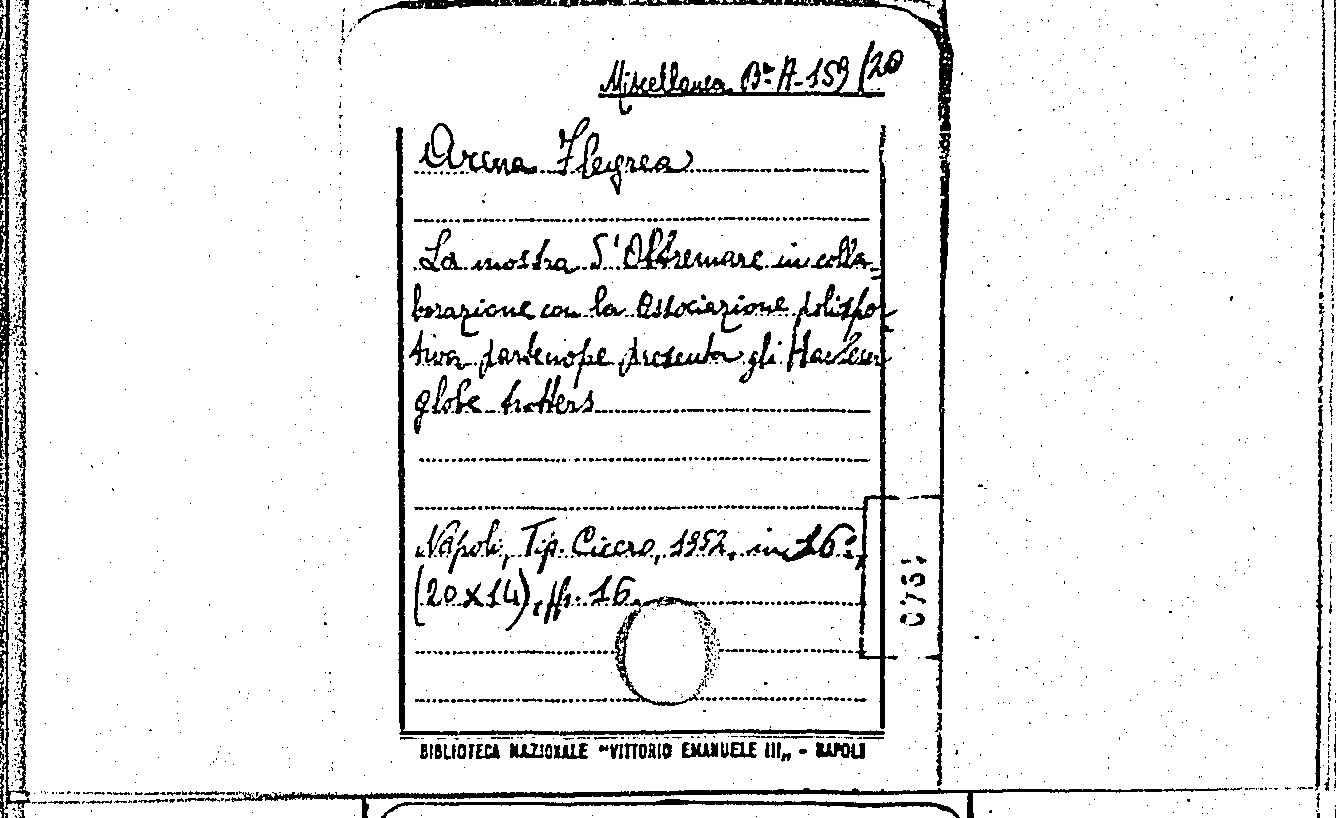 Miscellanea Bª A-159/20
Arena Flegrea
La mostra d'Oltremare in colla-
borazione con la Associazione polispor
tiva partenope presenta gli Harlem
globe trotters
Napoli, Tip. Cicero, 1952, in 16°,
(20x14), pp. 16.
BIBLIOTECA NAZIONALE "VITTORIO EMANUELE III„ - NAPOLI